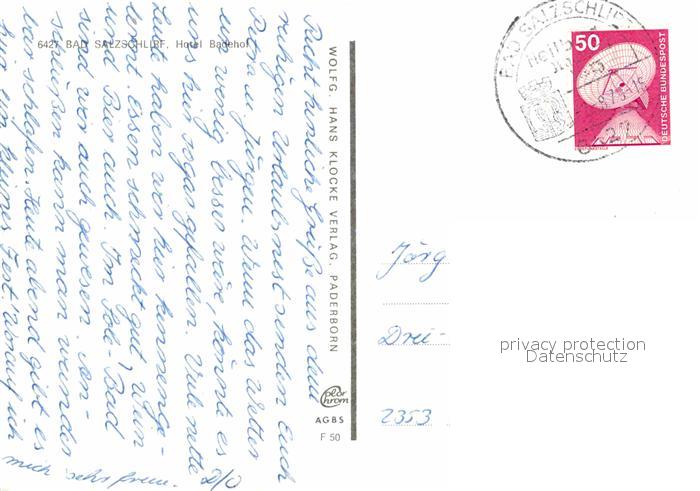 6427 BAD SALZSCHLIRF, Hotel Badehof
Recht herzliche Grüße aus dem
ruhigen Urlaubsnest senden Euch
Petra u. Jürgen. Wenn das Wetter
ein wenig besser wäre, könnte es
uns hier sogar gefallen. Viele nette
Leute haben wir hier kennenge-
lernt. Essen schmeckt gut, Wein
und Bier auch. Im Sole-Bad
sind wir auch gewesen. An-
schließend kann man wunderbar
schlafen. Heute abend gibt es
hier ein kleines Fest. Worauf ich
mich sehr freue. D/O
WOLFG. HANS KLOCKE VERLAG, PADERBORN
color chrom
AGBS
F 50
BAD SALZSCHLI
50
DEUTSCHE BUNDESPOST
Jörg
Drei-
2353
privacy protection
Datenschutz